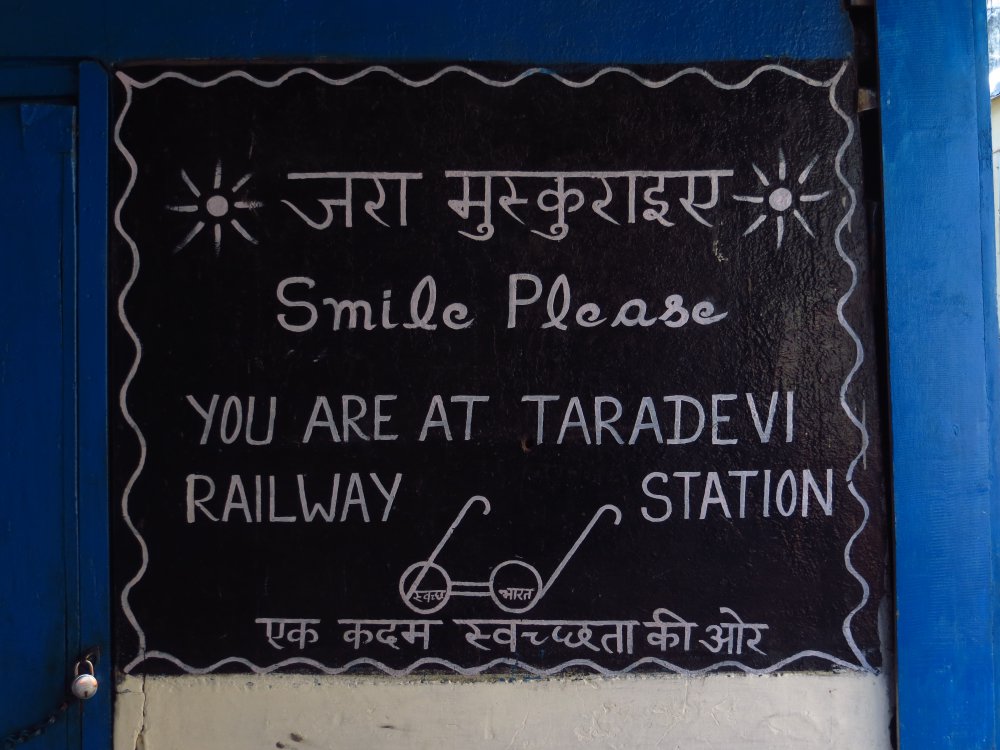 जरा मुस्कुराइए
Smile Please
YOU ARE AT TARADEVI
RAILWAY STATION
स्वच्छ भारत
एक कदम स्वच्छता की ओर